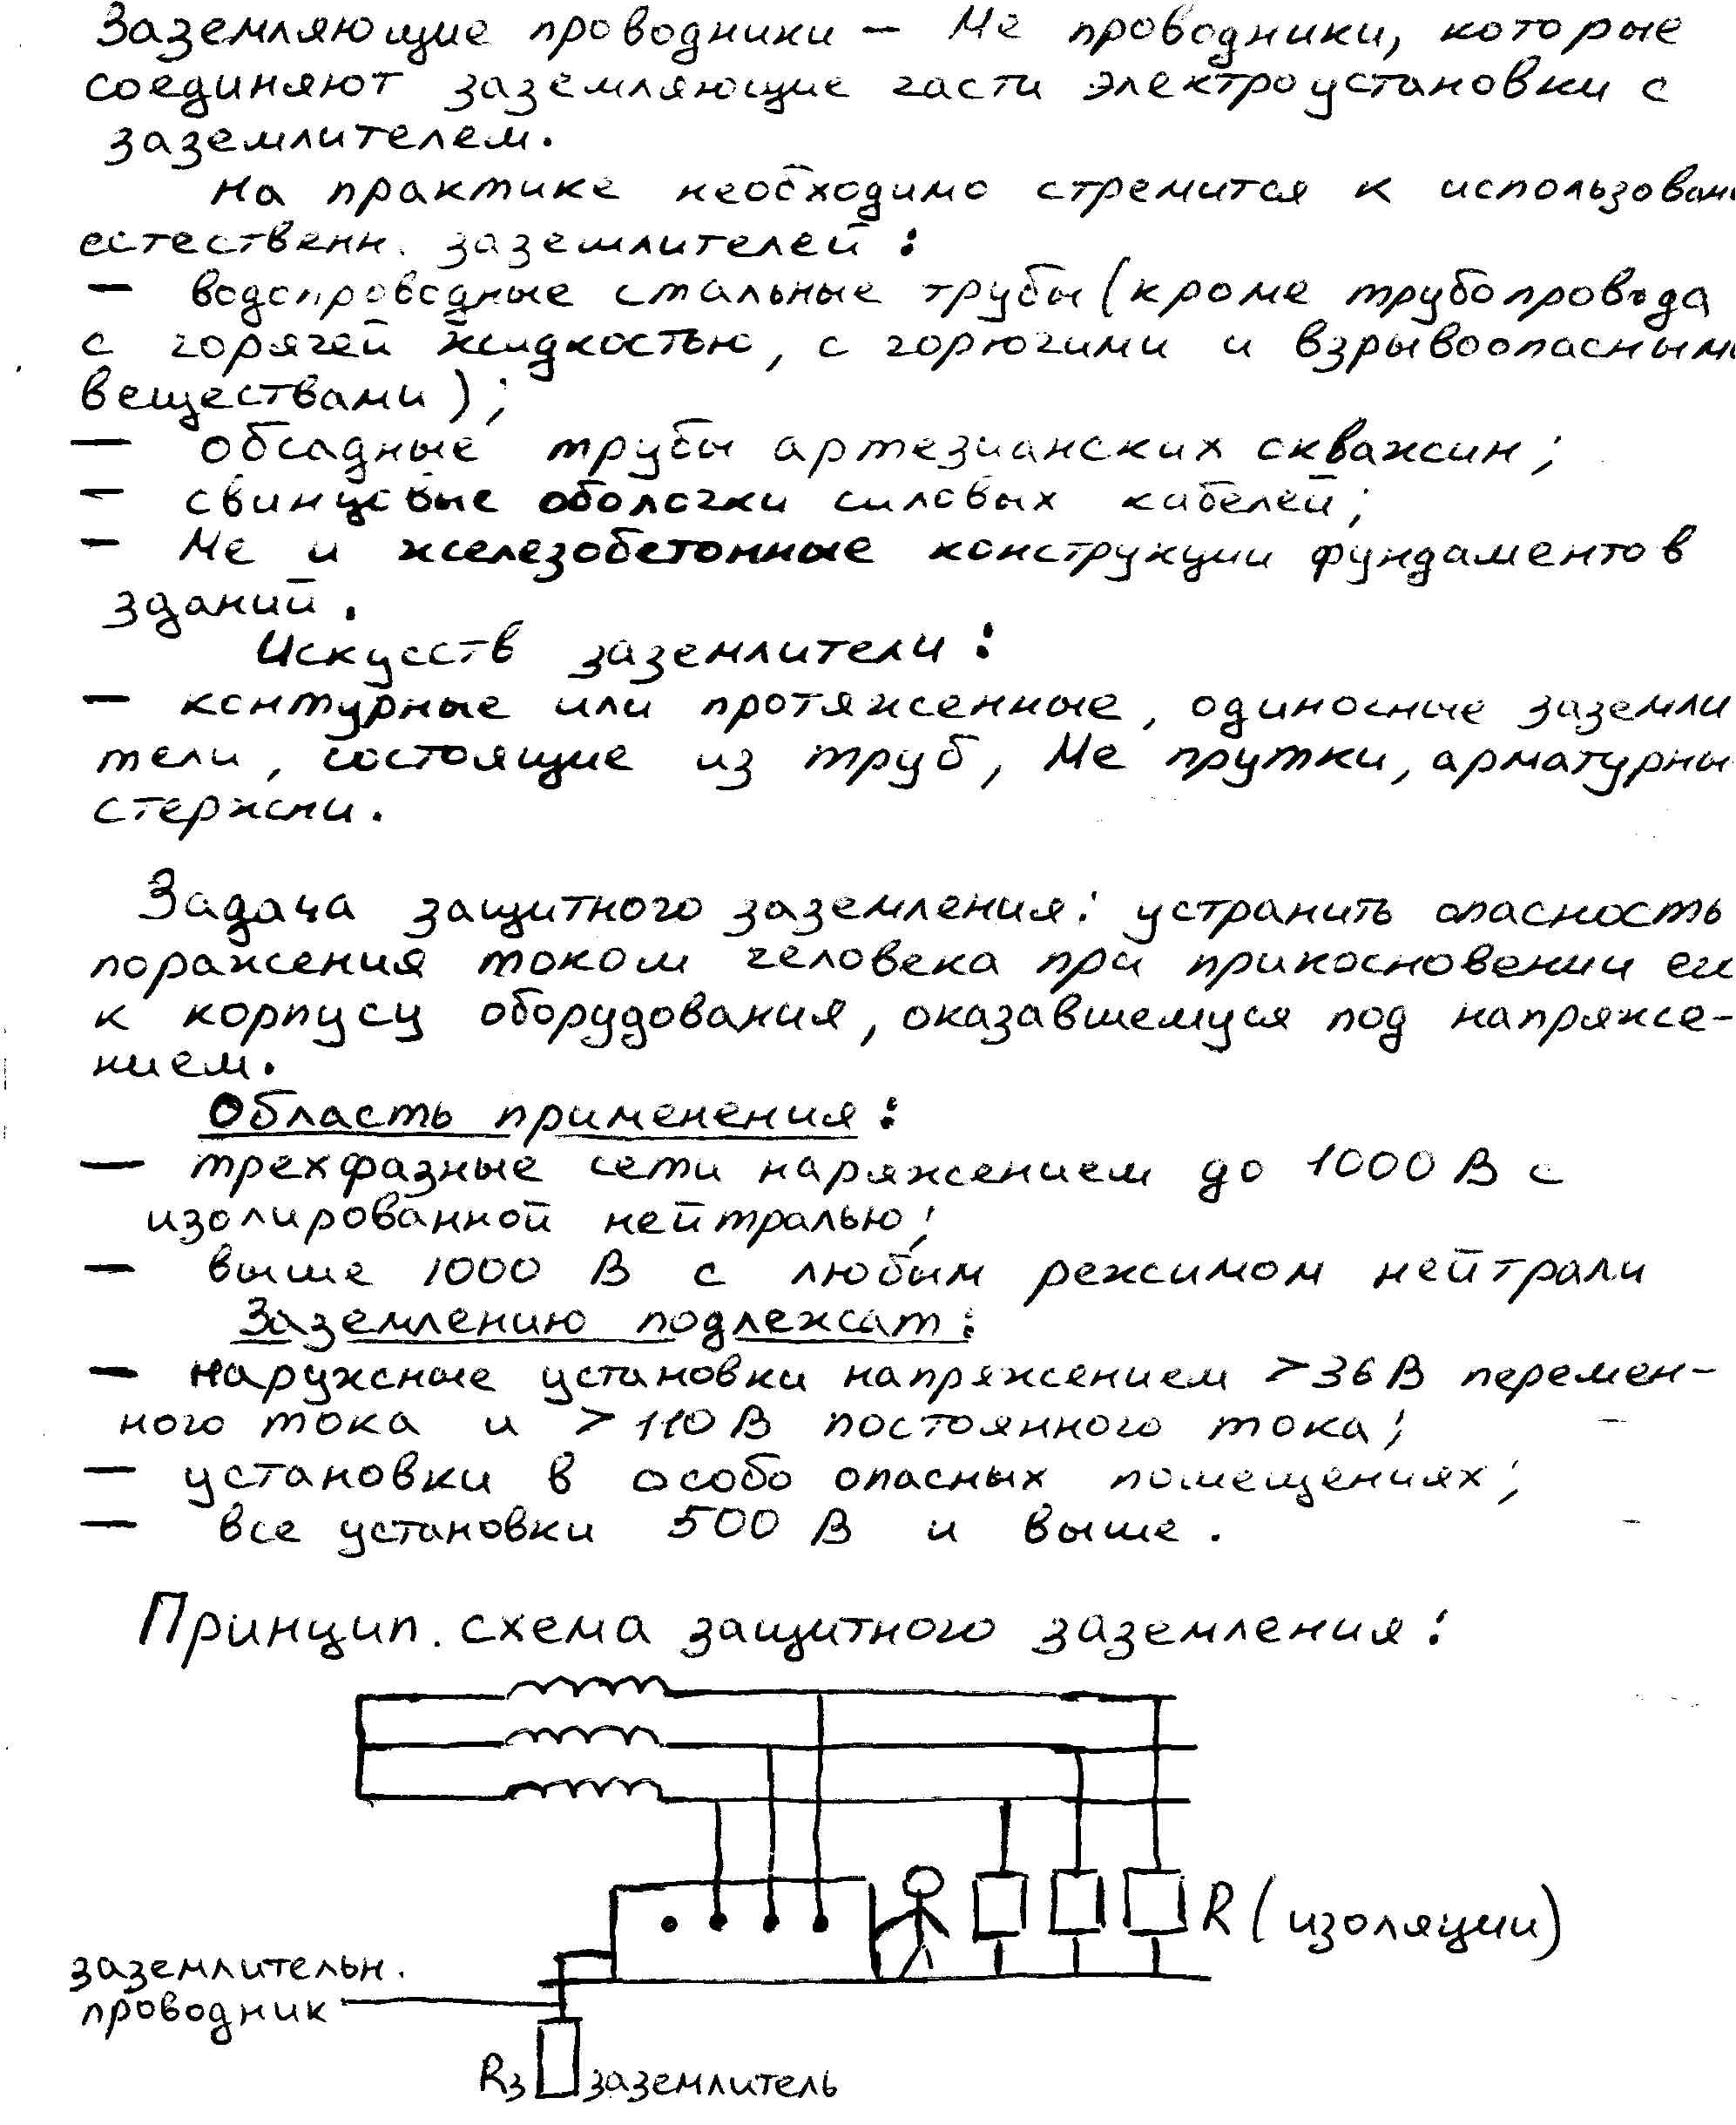 Заземляющие проводники – Ме проводники, которые
соединяют заземляющие части электроустановки с
заземлителем.
На практике необходимо стремится к использован
естественн. заземлителей:
– водопроводные стальные трубы (кроме трубопровода
с горячей жидкостью, с горючими и взрывоопасными
веществами);
– обсадные трубы артезианских скважин;
– свинцовые оболочки силовых кабелей;
– Ме и железобетонные конструкции фундаментов
зданий.
Искусств заземлители:
– контурные или протяженные, одиночные заземли
тели, состоящие из труб, Ме прутки, арматурны
стержни.
Задача защитного заземления: устранить опасность
поражения током человека при прикосновении ег
к корпусу оборудования, оказавшемуся под напряже-
нием.
Область применения:
– трехфазные сети наряжением до 1000 В с
изолированной нейтралью;
– выше 1000 В с любым режимом нейтрали
Заземлению подлежат:
– наружные установки напряжением >36 В перемен-
ного тока и >110 В постоянного тока;
– установки в особо опасных помещениях;
– все установки 500 В и выше.
Принцип. схема защитного заземления:
R (изоляции)
заземлительн.
проводник
Rз заземлитель